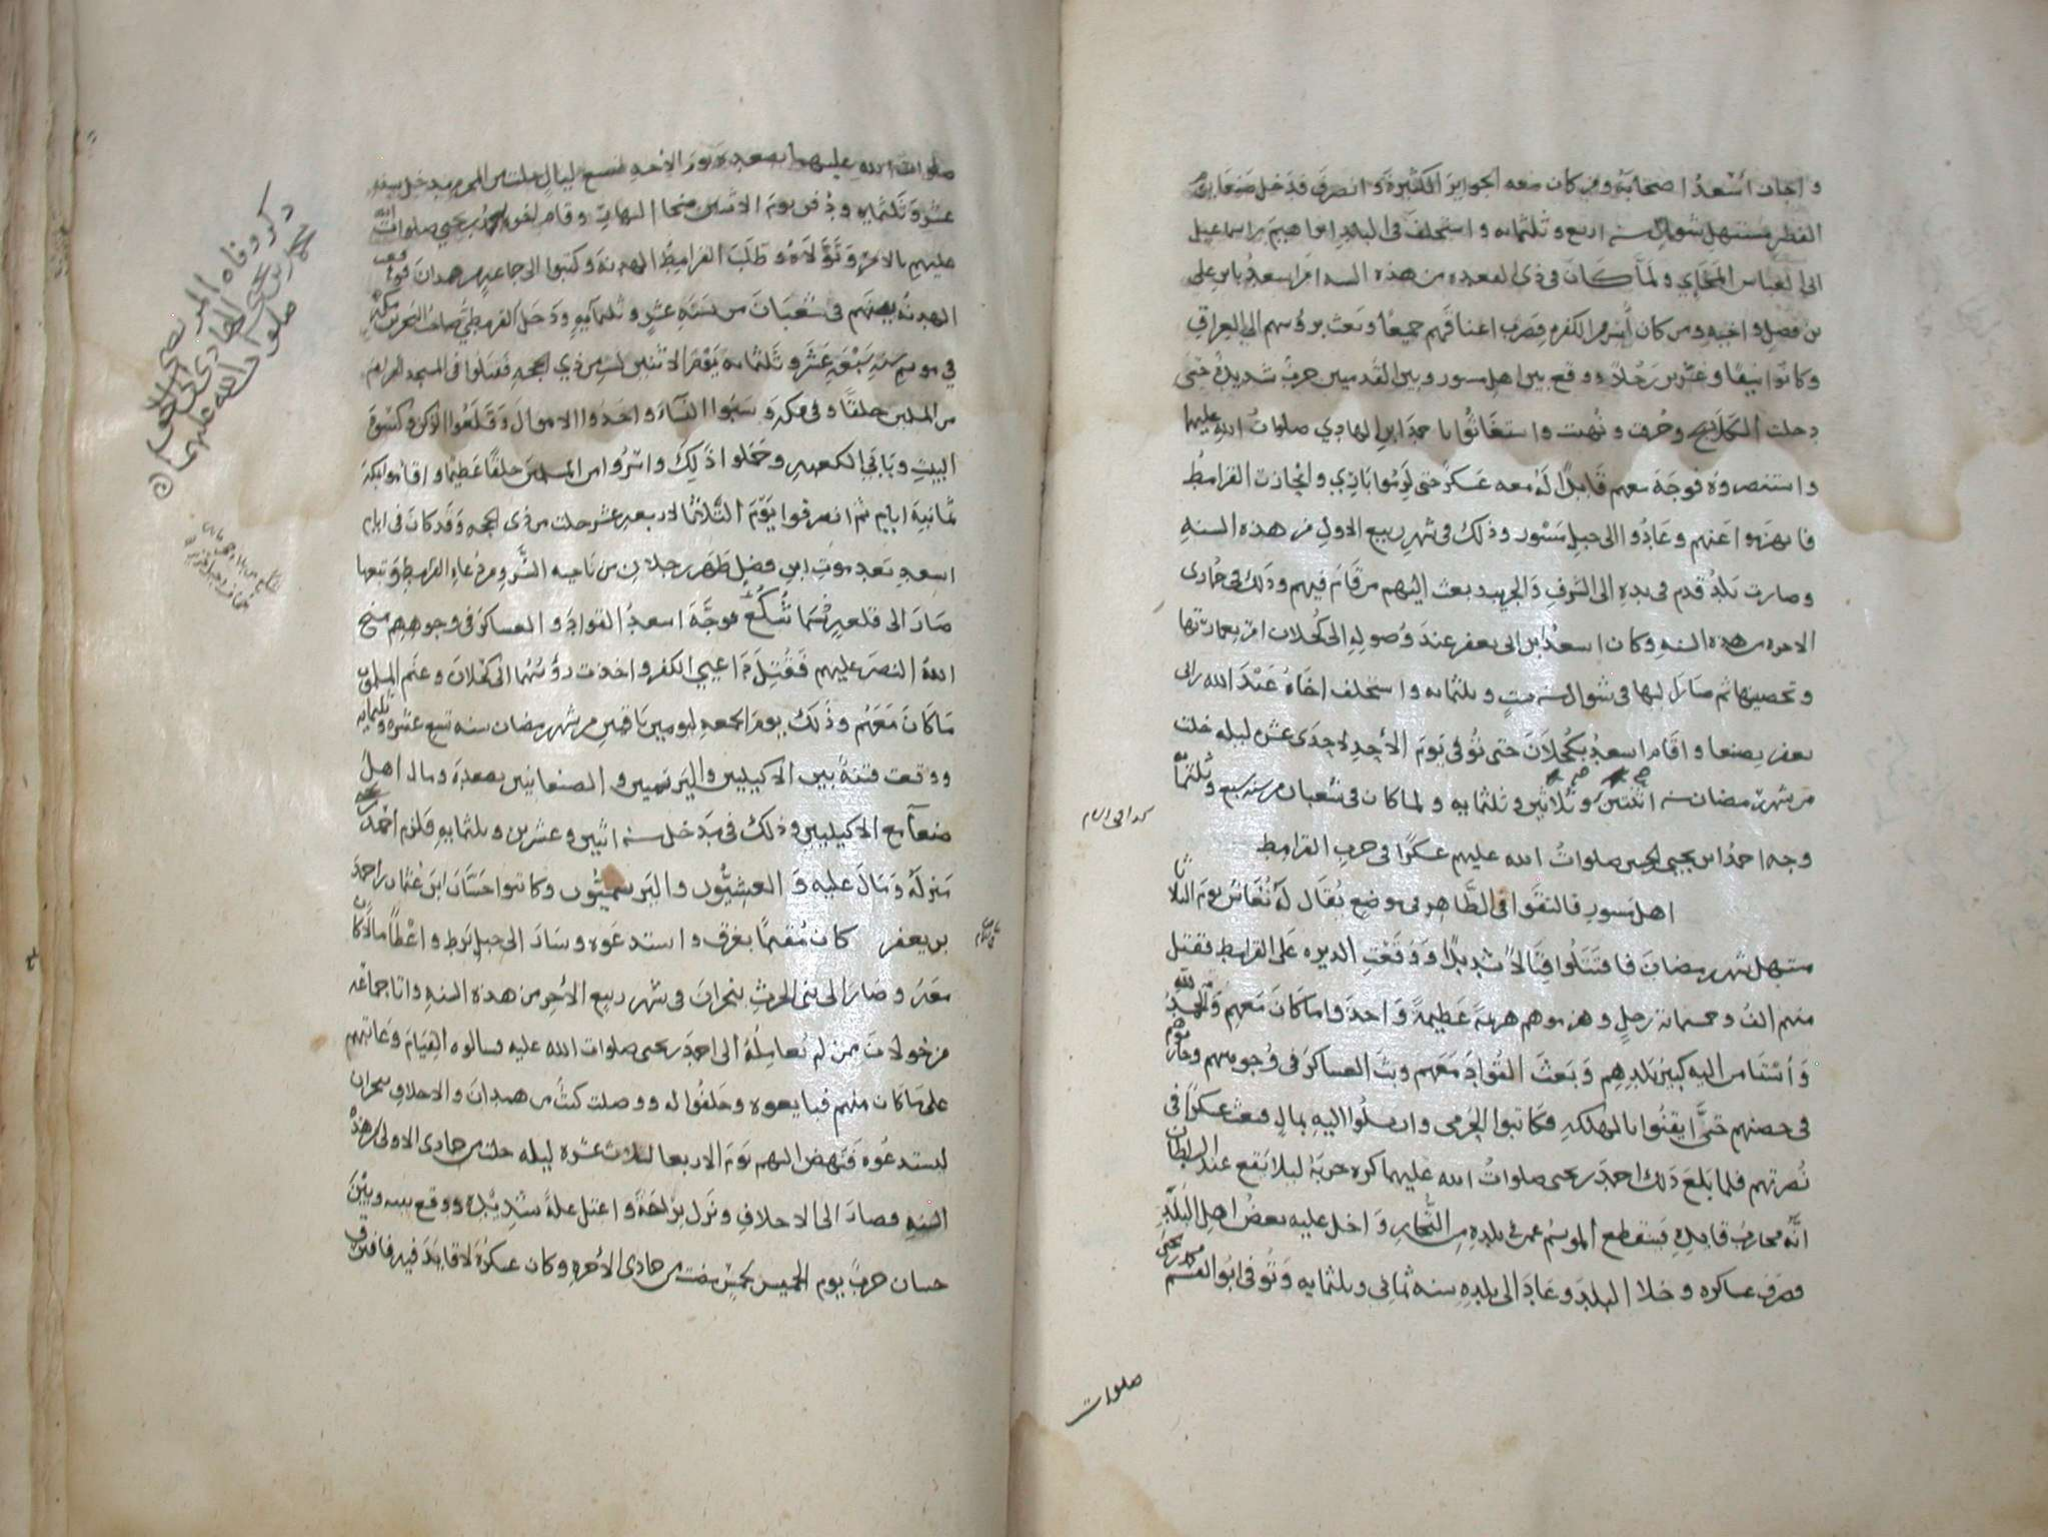 واجاز اسعد اصحابه ومن كان معه الجوايز الكثيرة وانصرف فدخل صنعا يوم
الفطر مستهل شوال سنه اربع وثلثمائه واستخلف فى البلاد ابراهيم بن اسماعيل
ابن العباس ولما كان فى ذى القعده من هذه السنه امر اسعد بابن على
بن فضل واخيه ومن كان اسر من الكفره فضرب اعناقهم جميعا وبعث برؤسهم الى العراق
وكانوا نيفا وعشرين رجلا ووقع بين اهل مسور وبين القدميين حرب شديده حتى
دخلت وحرقت ونهبت واستغاثوا باحمد ابن الهادي صلوات الله عليهما
واستنصروه فوجه معهم قايدا له معه عسكر حتى وانحازت القرامط
فانهزموا عنهم وعادوا الى جبل مسور وذلك فى شهر ربيع الاول من هذه السنه
وصارت بلد قدم فى يده الى الشرف والجريب وبعث اليهم من قام فيهم وذلك فى جمادى
الاخره من هذه السنه وكان اسعد ابن ابى يعفر عند وصوله الى كحلان امر بعمارتها
وتحصينها ثم صار اليها فى شوال سنه ست وثلثمائه واستخلف اخاه عبد الله بن ابى
يعفر بصنعا واقام اسعد بكحلان حتى توفى يوم الأحد لاحدى عشره ليله خلت
من شهر رمضان سنه اثنتين وثلاثين وثلثمايه ولما كان فى شعبان من سنه سبع وثلثمائه
وجه احمد ابن يحيى بن الحسين صلوات الله عليهم عسكرا فى حرب القرامط
اهل مسور فالتقوا فى الظاهر فى موضع يقال له نغاش يوم الثلاثا
مستهل شهر رمضان فاقتتلوا قتالا شديدا ووقعت الديره على القرامط فقتل
منهم الف وخمسمائة رجل وهزموهم هزيمة عظيمة واخذوا ما كان معهم والحمد لله
واستامن اليه كبير بلدهم وبعث القواد معهم وبث العساكر فى وجوههم وحازوهم
فى حصنهم حتى ايقنوا بالهلكه فكاتبوا الجرمى وارسلوا اليه بمال فبعث عسكرا فى
نصرتهم فلما بلغ ذلك احمد بن يحيى صلوات الله عليهما كره حربه ليلا يقع عند السلطان
انه محارب قايده فينقطع الموسم عمن فى بلده من التجار واخل عليه بعض اهل البلد
فصرف عساكره وخلا البلد وعاد الى بلده سنه ثمانى وثلثمايه وتوفى ابو القسم محمد بن يحيى
صلوات
صلوات الله عليهما بصعده يوم الأحد لتسع ليال خلت من المحرم مدخل سنه
عشر وثلثمايه ودفن يوم الاثنين ضحا النهار وقام اخوه احمد بن يحيى صلوات الله
عليهم بالامر وتولاه وطلب القرامط الهدنة وكتبوا الى جماعه من همدان فوقعت
الهدنه بينهم فى شعبان من سنة عشر وثلثمايه ودخل القرمطي صاحب البحرين مكه
في موسم سنه سبع عشر وثلثمايه يوم الاثنين لست من ذي الحجه فقتلوا فى المسجد الحرام
من المسلمين خلقا وفى مكه وسبوا النسآء واخذوا الاموال وقلعوا الركن وكسوة
البيت وبابي الكعبه وحملوا ذلك واسروا من المسلمين خلقا عظيما واقاموا بمكة
ثمانية ايام ثم انصرفوا يوم الثلاثا لاربع عشر خلت من ذى الحجه وقد كان فى ايام
اسعد بعد موت ابن فضل ظهر رجلان من ناحيه السر ومن دعاه القرامط وتبعها
صار الى قلعه فوجه اسعد القواد والعساكر فى وجوههم فمنح
الله النصر عليهم فقتل داعيي الكفر واخذت رؤسهما الى كحلان وغنم المسلمون
ما كان معهم وذلك يوم الجمعه ليومين باقيين من شهر رمضان سنه تسع عشره وثلثمايه
ووقعت فتنة بين الاكيليين واليرسميين والصنعانيين بصعدة ومال اهل
صنعآ مع الاكيليين وذلك فى مدخل سنه اثنين وعشرين وثلثمايه فلزم احمد
منزله ومال عليه و العشيون واليرسميون وكاتبوا حسان ابن عثمان بن احمد
بن يعفر كان مقيما بغرق واستدعوه وسار الى جبل برط واعطا مالا كان
معه وصار الى بنى الحرث بنجران فى شهر ربيع الأخر من هذه السنه واتا جماعه
من خولان ممن لم يعامله الى احمد بن يحيى صلوات الله عليه فسالوه القيام وعاتبهم
على ما كان منهم فبايعوه وحلفوا له ووصلت كتب من همدان والاحلاف بنجران
ليستدعوه فنهض اليهم يوم الاربعا لثلاث عشره ليله خلت من جمادى الاولى من هذه
السنه فصار الى الاحلاف ونزل واعتل علة شديده ووقع بينه وبين
حسان حرب يوم الخميس لخمس بقيت من جمادى الأخره وكان عسكره لا قايد فيه فافترق
ذكر وفاه المرتضى لدين الله
محمد بن يحيى الهادى الى الحق
صلوات الله عليهما